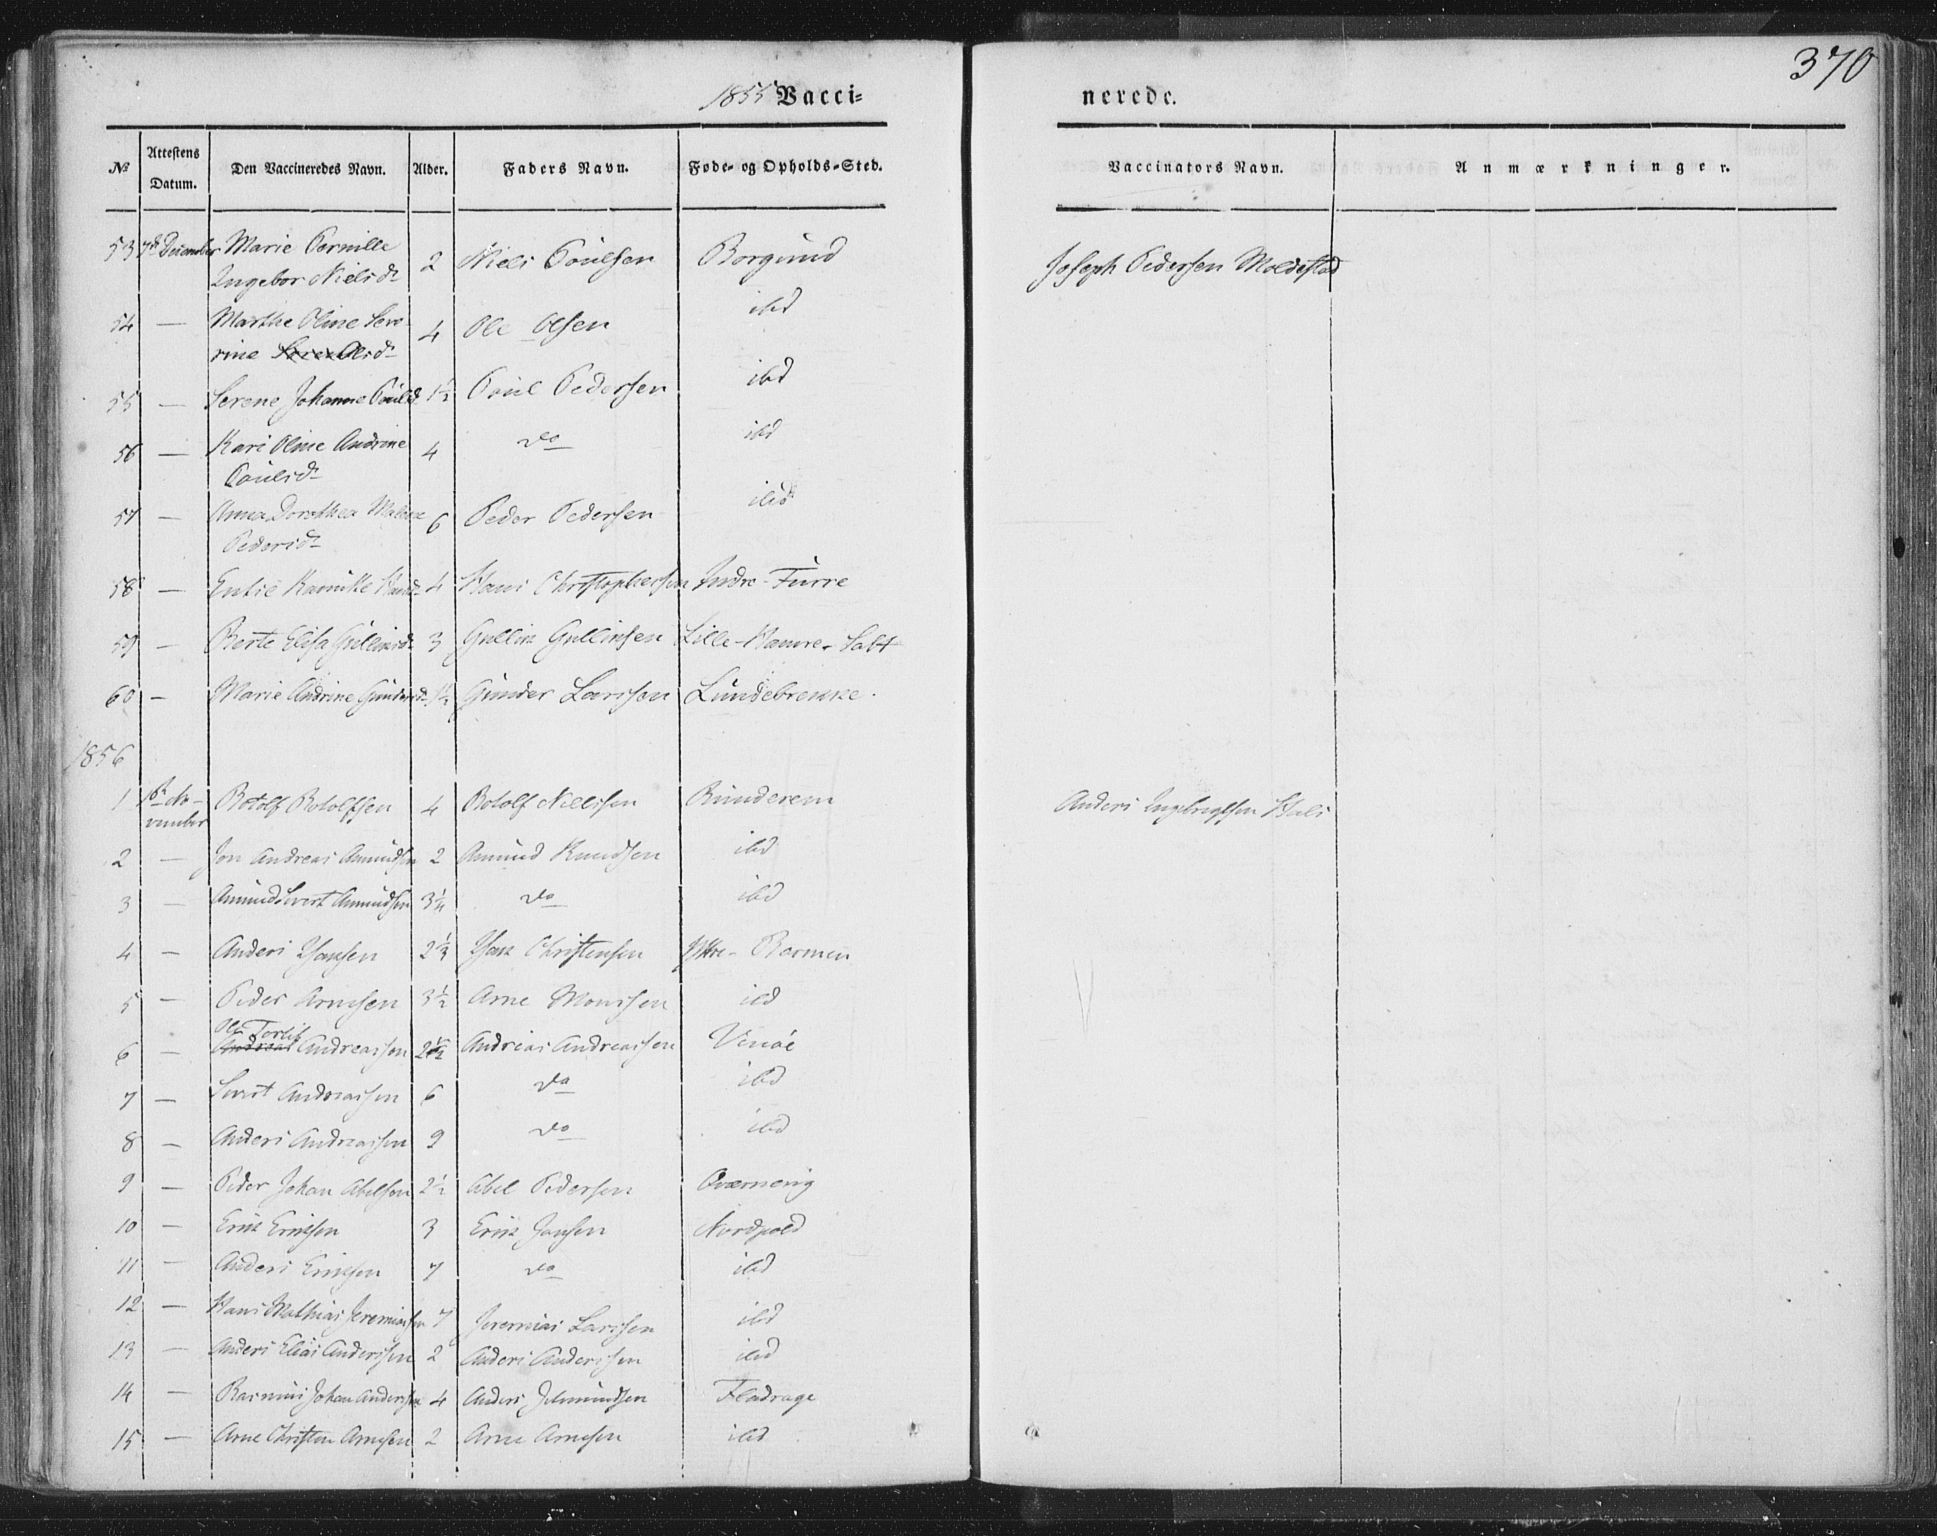 370
1855 Vacci- nerede.
№ Attestens Datum. Den Vaccineredes Navn. Alder. Faders Navn. Føde- og Opholds-Sted. Vaccinators Navn. Anmærkninger.
53 7de December Marie Pernille Ingebor Nielsd. 2 Niels Poulsen Borgund Joseph Pedersen Moldestad
54 — Marthe Oline Serine Olsd. 4 Ole Olsen ibd
55 — Serene Johanne Poulsd. 1½ Poul Pedersen ibd
56 — Kari Oline Andrine Poulsd. 4 do ibd
57 — Anna Dorothea Malene Pedersd. 6 Peder Pedersen ibid
58 — 4 Hans Christophersen Indre-Furre
59 — Berte Elisa 3 Lille-Hamre-
60 — Marie Andrine Gundersd. 1½ Gunder Larssen Lundebrekke.
1856
1 November Rotolf Rotolfsen 4 Rotolf Nielssen Runderem Anders Ingebrigtsen
2 — Jon Andreas Amundsen 2 Amund Knudsen ibd
3 — Amund Sivert Amundsen 3¼ do ibd
4 — Anders Hansen Hans Christensen Ytre-Barmen
5 — Peder Arnesen 3½ Arne Monssen ibd
6 — Ole Torlif Andreassen 2½ Andreas Andreassen
7 — Sivert Andreassen 6 do ibd
8 — Anders Andreassen 9 do ibd
9 — Peder Johan Abelsen 2½ Abel Pedersen
10 — Erik Eriksen 3 Erik Jansen Nordpold
11 — Anders Eriksen 7 do ibd
12 — Hans Mathias Jeremiassen 7 Jeremias Larssen ibd
13 — Anders Elias Anderssen 2 Anders Anderssen ibd
14 — Rasmus Johan Anderssen 4 Anders Fladrage
15 — Arne Christen Arnesen 2 Arne Arnesen ibd